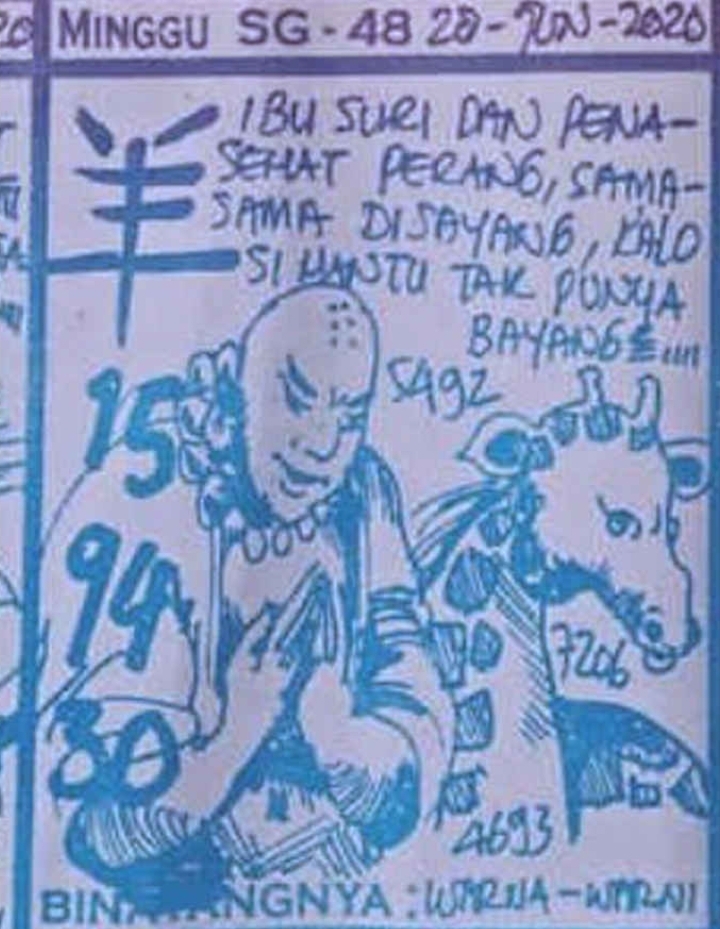 MINGGU SG-48 28-JUN-2020
羊
IBU SURI DAN PENA-
SEHAT PERANG, SAMA-
SAMA DISAYANG, KALO
SI HANTU TAK PUNYA
BAYANG²....
5492
15
94
80
7206
4693
BINATANGNYA : WARNA-WARNI